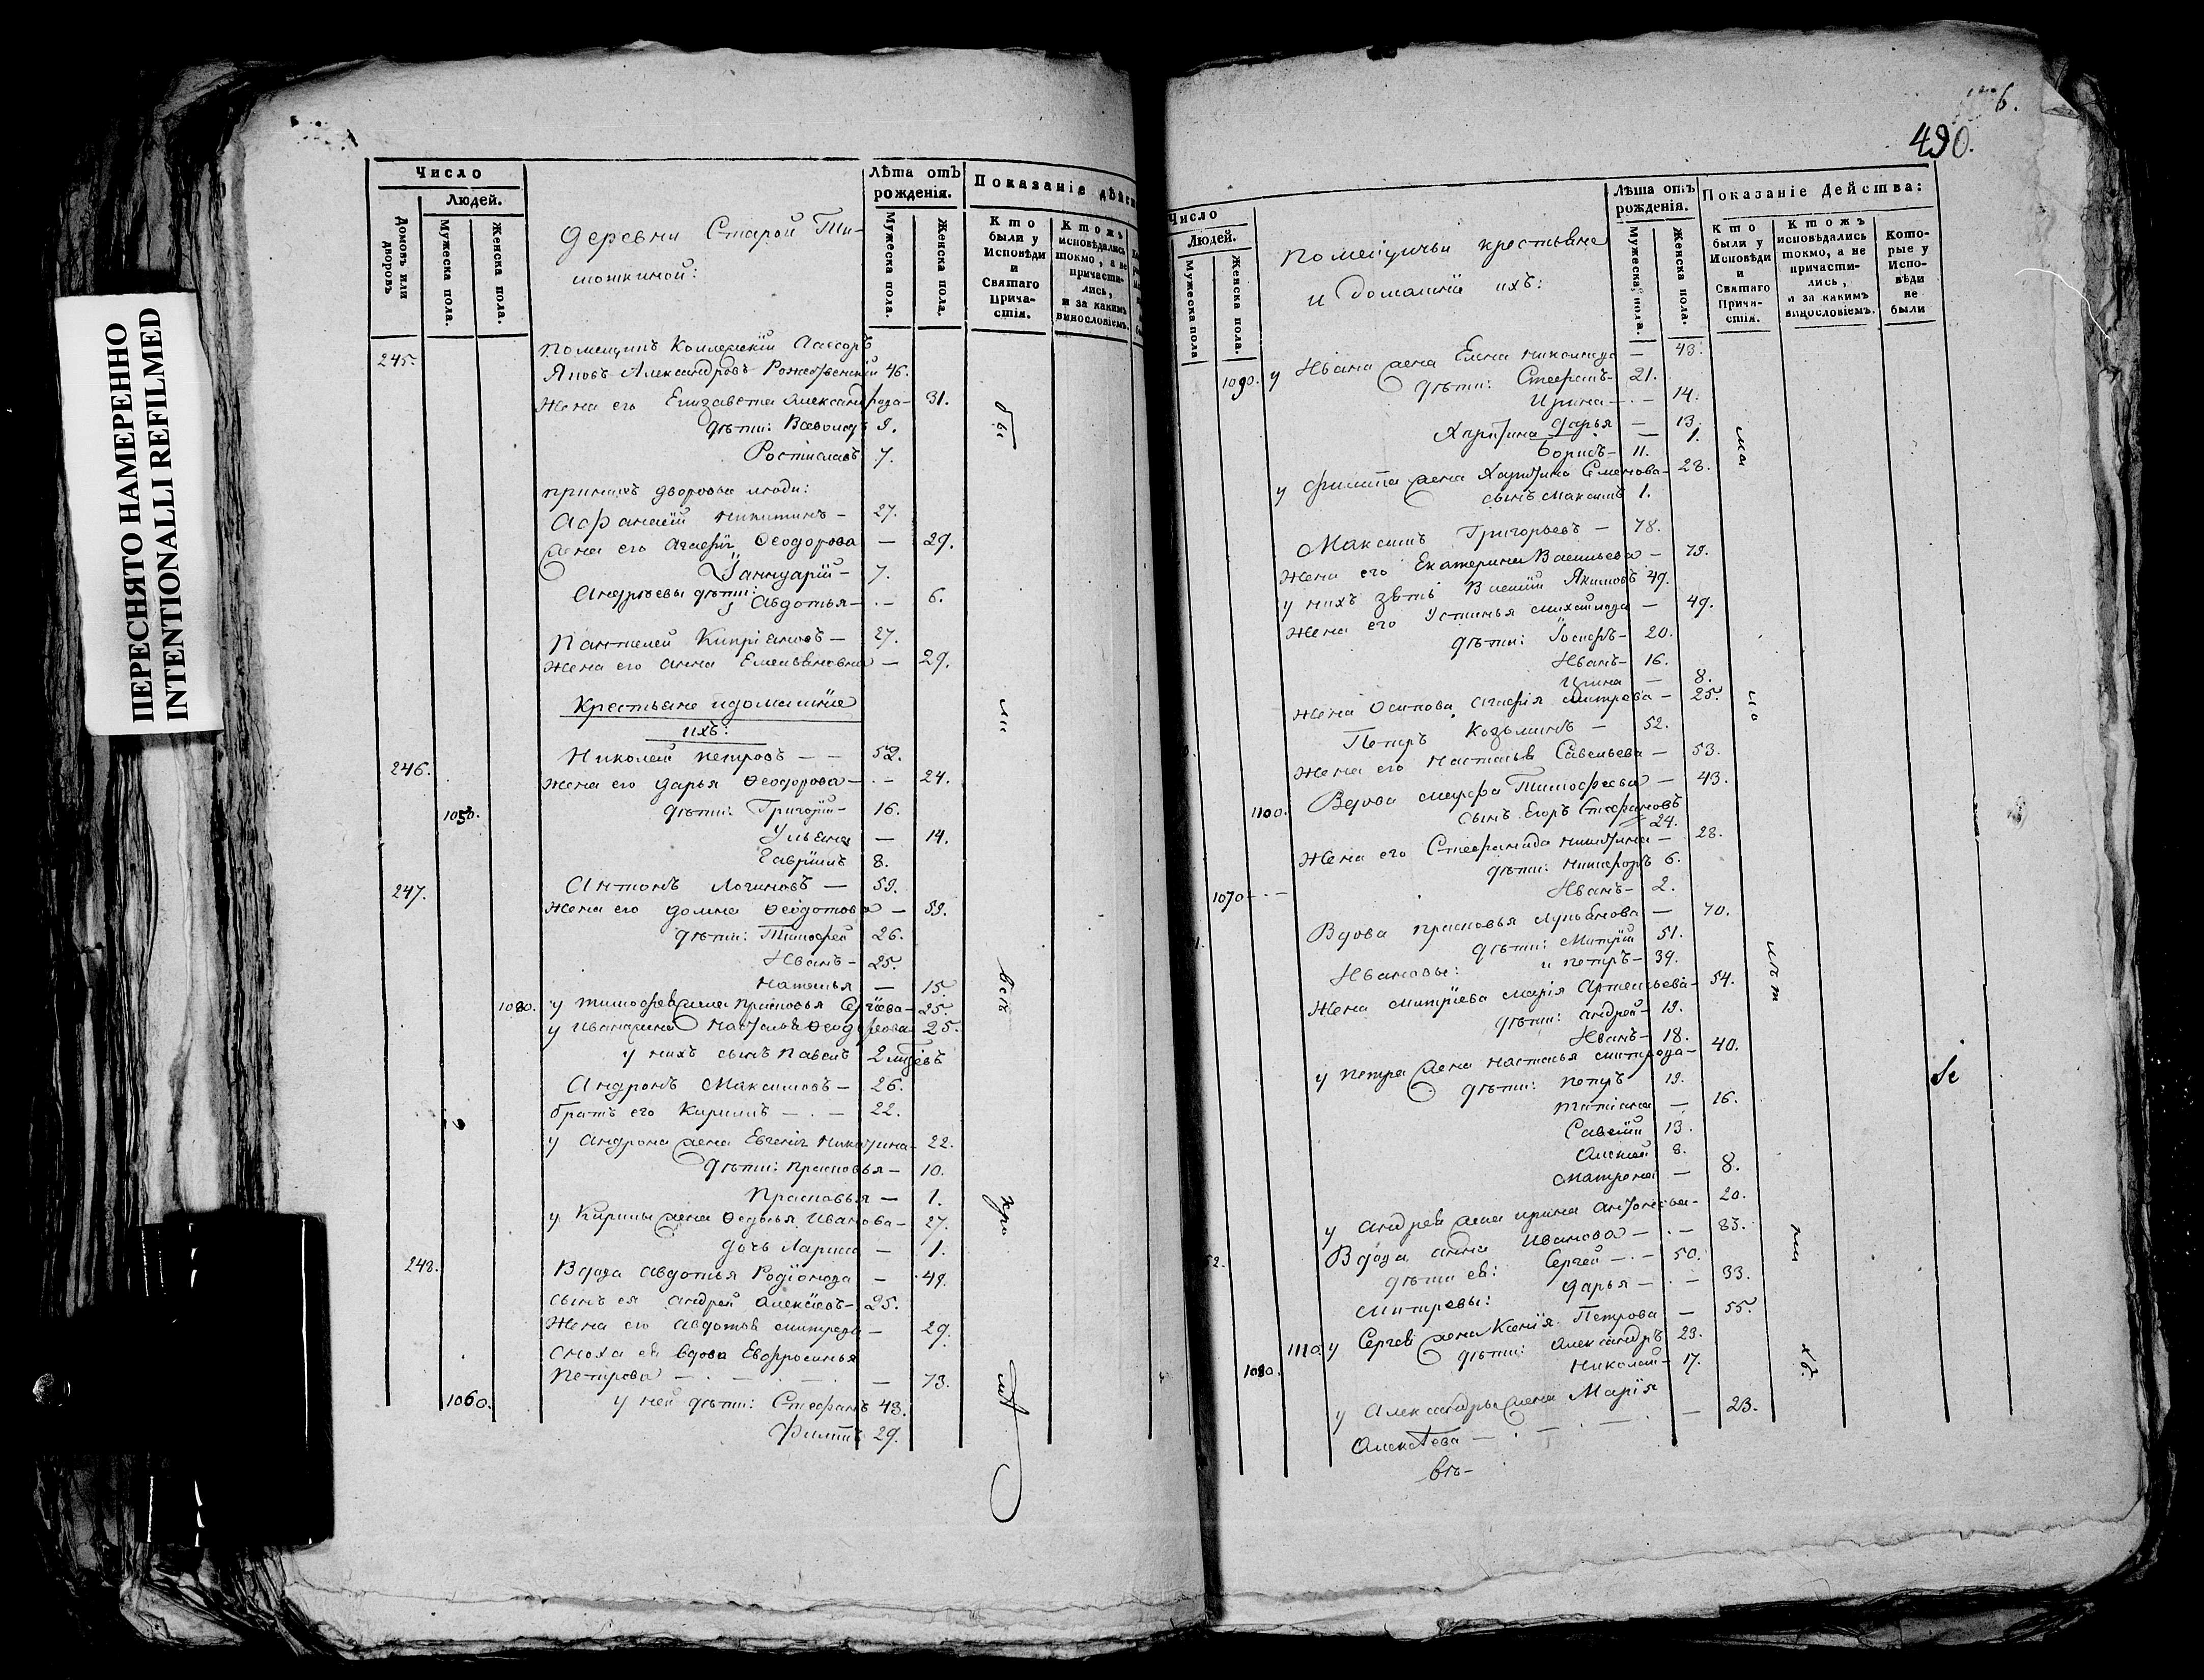 ПЕРЕСНЯТО НАМЕРЕННО
INTENTIONALLI REFILMED
Число
Людей.
Домовъ или дворовъ
Мужеска пола.
Женска пола.
деревни Старой Ти-
мошкиной:
Лѣта отъ рожденія.
Мужеска пола.
Женска пола.
Показаніе дѣйст
Кто были у Исповѣди и Святаго Прича-стія.
Ктожъ исповѣдались токмо, а не причасти-лись, и за какимъ винословіемъ.
245. помещикъ Коллежскій Ассесоръ
Яковъ Александровъ Рождественскій 46.
Жена его Елизавета Александрова — 31.
дѣти: Всеволодъ 9.
Ростиславъ 7.
при нихъ дворовые люди:
Афанасій Никитинъ — 27.
жена его Агафія Ѳеодорова — 29.
Іаннуарій — 7.
Андреевы дѣти:
Авдотья — 6.
Пантелей Кипріановъ — 27.
Жена его Анна Емельяновна — 29.
Крестьяне и домашніе
ихъ:
246. Николай Петровъ — 52.
Жена его Дарья Ѳеодорова — 24.
1050. дѣти: Григорій — 16.
Ульяна — 14.
Гаврілъ 8.
247. Антонъ Логиновъ — 59.
Жена его Домна Ѳеодотова — 59.
дѣти: Тимофей 26.
Иванъ — 25.
Наталья — 15.
1080. у Тимофея жена Прасковья Сергіева — 25.
у Ивана жена Наталья Ѳеодорова 25.
у нихъ сынъ Павелъ 2
Андронъ Максимовъ — 26.
братъ его Кирилъ — 22.
у Андрона жена Евгенія Никитина — 22.
дѣти: Прасковья — 10.
Прасковья — 1.
у Кирилы жена Ѳедосья Иванова — 27.
дочь Лариса — 1.
248. Вдова Авдотья Родіонова — 49.
сынъ ея Андрей Алексіевъ — 25.
Жена его Авдотья Митрева — 29.
сноха ея вдова Евфросинья
Петрова — 73.
1060. у ней дѣти: Стефанъ 43.
Филипъ 29.
6.
490.
Число
Людей.
Мужеска пола
Женска пола.
помещичьи крестьяне
и домашніе ихъ:
Лѣта отъ рожденія.
Мужеска пола.
Женска пола.
Показаніе Действа:
Кто были у Исповѣди и Святаго Прича-стія.
Ктожъ исповѣдались токмо, а не причасти-лись, и за какимъ винословіемъ.
Кото-рые у Испо-вѣди не были
1090. у Ивана жена Елена Николаева — 43.
дѣти: Стефанъ — 21.
Ирина — 14.
Дарья — 13.
Харитина — 1.
Борисъ — 11.
у Филипа жена Харитина Семенова — 28.
сынъ Максимъ 1.
Максимъ Григорьевъ — 78.
Жена его Екатерина Васильева — 79.
у нихъ зять Василій Якимовъ 49.
Жена его Устинья Михайлова — 49.
дѣти: Іосифъ — 20.
Иванъ — 16.
Ирина — 8.
Жена Осипова Агафія Митрева — 25.
Петръ Козьминъ — 52.
Жена его Настасья Савельева — 53.
1100. Вдова Марфа Тимофеева — 43.
сынъ Егоръ Стефановъ
24.
Жена его Стефанида Никитина — 28.
дѣти: Никифоръ 6.
1070 Иванъ — 2.
Вдова Прасковья Лукьянова — 70.
дѣти: Митрій 51.
Ивановы: и Петръ — 39.
Жена Митріева Марія Артемьева — 54.
дѣти: Андрей — 19.
Иванъ — 18.
у Петра жена Настасья Митрева — 40.
дѣти: Петръ 19.
Татіана — 16.
Савелій 13.
Алексей 8.
Матрона — 8.
у Андрея жена Ирина Антоновна — 20.
Вдова Анна Иванова — 83.
дѣти ея: Сергей — 50.
Дарья — 33.
Митревы:
1110. у Сергея жена Ксенія Петрова — 55.
дѣти: Александръ 23.
1080. Николай — 17.
у Александра жена Марія
Алексѣева — 23.